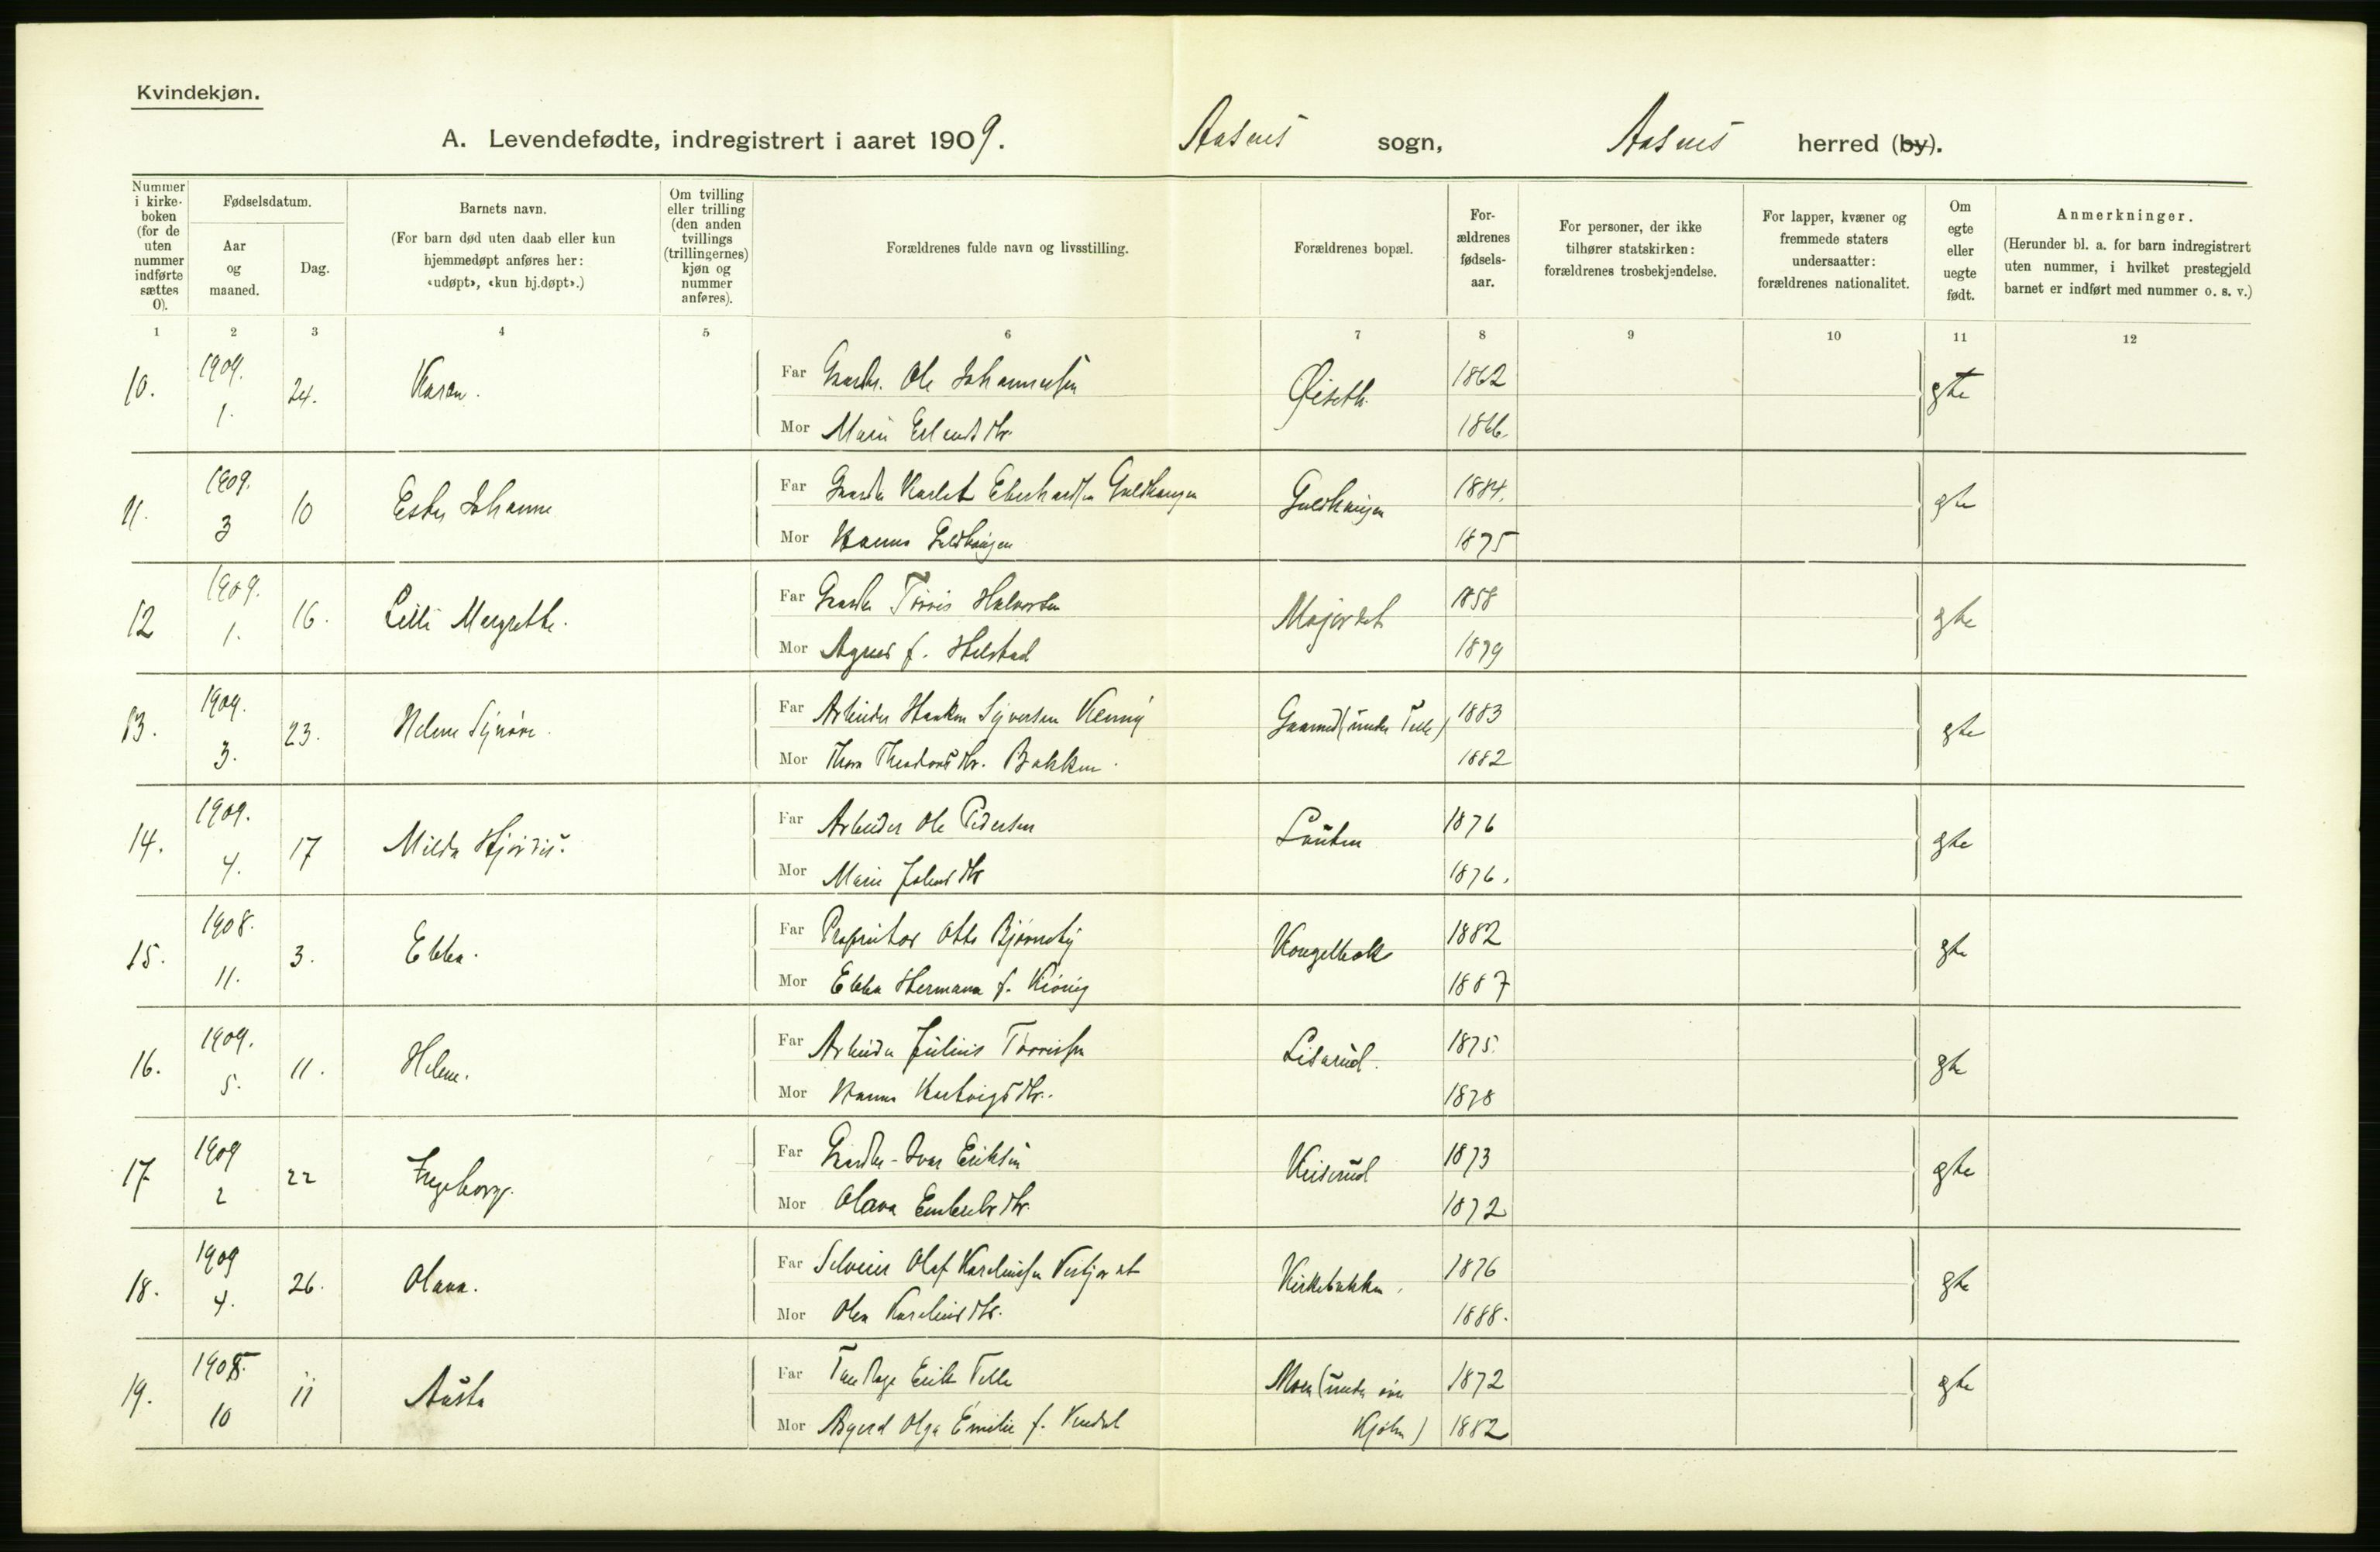 Kvindekjøn.
A. Levendefødte, indregistrert i aaret 1909. Aasnes sogn, Aasnes herred (by).
Nummer i kirkeboken (for de uten nummer indførte sættes 0).
Fødselsdatum.
Aar og maaned.
Dag.
Barnets navn.
(For barn død uten daab eller kun hjemmedøpt anføres her: «udøpt», «kun hj.døpt».)
Om tvilling eller trilling (den anden tvillings (trillingernes) kjøn og nummer anføres).
Forældrenes fulde navn og livsstilling.
Forældrenes bopæl.
Forældrenes fødselsaar.
For personer, der ikke tilhører statskirken: forældrenes trosbekjendelse.
For lapper, kvæner og fremmede staters undersaatter: forældrenes nationalitet.
Om egte eller uegte født.
Anmerkninger.
(Herunder bl. a. for barn indregistrert uten nummer, i hvilket prestegjeld barnet er indført med nummer o. s. v.)
1 2 3 4 5 6 7 8 9 10 11 12
10. 1909. 1. 24. Karen. Far Gaardbr. Ole Johannessen Øiseth 1862 gte
Mor Marie Erlandsdtr. 1866.
11. 1909. 3 10 Ester Johanne Far Gaardbr Karlot Eberhardsen Guldhaugen Guldhaugen 1884. gte
Mor Hanna Guldhaugen 1875
12 1909. 1. 16. Lilli Margrethe. Far Gaardbr Tørris Halvorsen Mojordet 1858 gte
Mor Agnes f. Helstad 1879
13. 1909. 3. 23. Helene Synøve. Far Arbeider Haakon Syversen (under Telle) 1883 gte
Mor Thora Theodorsdtr. Bakken. 1882
14. 1909. 4. 17 Milda Hjørdis. Far Arbeider Ole Pedersen Lauten 1876 gte
Mor Marie Johnsdtr 1876.
15. 1908. 11. 3. Ebba. Far Proprietær Otto Bjørneby Kongelbæk 1882 gte
Mor Ebba Hermana f. Kiønig 1887
16. 1909. 5. 11. Helene. Far Arbeider Julius Tørrissen Liserud. 1875. gte
Mor Hanna Hartvigsdtr. 1878
17 1909 2 22 Ingeborg. Far Gaardbr. Ivar Eriksen Keiserud 1873 gte
Mor Olava Embretsdtr. 1872
18. 1909 4. 26. Olava. Far Selveier Olaf Karelinsen Kirkebakken. 1876 gte
Mor Olea Kareliusdtr. 1888.
19. 1908. 10 11 Aasta Far Erik Telle Moen (under øvre 1872 gte
Mor Asgerd Olga Emilie f. Kjølen) 1882